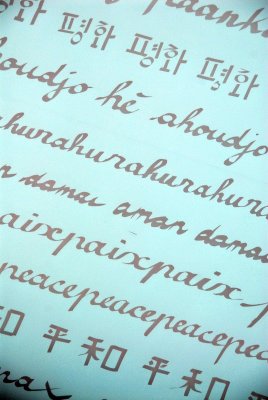 화 평화 평화 평화
ahoudjo hê ahoudjo
hurahurahurahura
n damai aman damai
paixpaixpaix
peacepeacepeacepeace
和 平和 平和